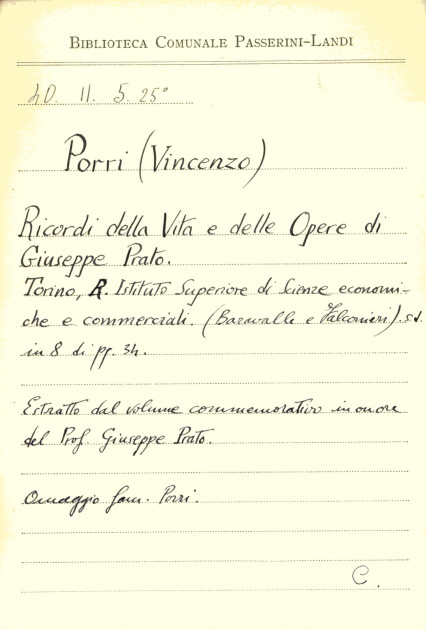 BIBLIOTECA COMUNALE PASSERINI-LANDI
40. 11. 5. 25°
Porri (Vincenzo)
Ricordi della Vita e delle Opere di
Giuseppe Prato.
Torino, R. Istituto Superiore di Scienze economi-
che e commerciali. (Baravalle e Falconieri). s.d.
in 8 di pp. 34.
Estratto dal volume commemorativo in onore
del Prof. Giuseppe Prato.
Omaggio fam. Porri.
C.